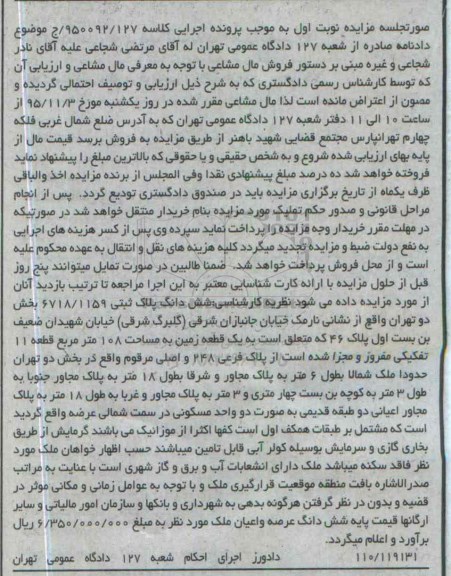 صورتجلسه مزایده نوبت اول به موجب پرونده اجرایی کلاسه ۹۵۰۰۹۲/۱۲۷/ج موضوع
دادنامه صادره از شعبه ۱۲۷ دادگاه عمومی تهران له آقای مرتضی شجاعی علیه آقای نادر
شجاعی و غیره مبنی بر دستور فروش مال مشاعی با توجه به معرفی مال مشاعی و ارزیابی آن
که توسط کارشناس رسمی دادگستری که به شرح ذیل ارزیابی و توصیف احتمالی گردیده و
مصون از اعتراض مانده است لذا مال مشاعی مقرر شده در روز یکشنبه مورخ ۹۵/۱۱/۳ از
ساعت ۱۰ الی ۱۱ دفتر شعبه ۱۲۷ دادگاه عمومی تهران که به آدرس ضلع شمال غربی فلکه
چهارم تهرانپارس مجتمع قضایی شهید باهنر از طریق مزایده به فروش برسد قیمت مال از
پایه بهای ارزیابی شده شروع و به شخص حقیقی و یا حقوقی که بالاترین مبلغ را پیشنهاد نماید
فروخته خواهد شد ده درصد مبلغ پیشنهادی نقدا وفی المجلس از برنده مزایده اخذ والباقی
ظرف یکماه از تاریخ برگزاری مزایده باید در صندوق دادگستری تودیع گردد. پس از انجام
مراحل قانونی و صدور حکم تملیک مورد مزایده بنام خریدار منتقل خواهد شد در صورتیکه
در مهلت مقرر خریدار وجه مزایده را پرداخت نماید سپرده وی پس از کسر هزینه های اجرایی
به نفع دولت ضبط و مزایده تجدید میگردد کلیه هزینه های نقل و انتقال به عهده محکوم علیه
است و از محل فروش پرداخت خواهد شد. ضمنا طالبین در صورت تمایل میتوانند پنج روز
قبل از حلول مزایده با ارائه کارت شناسایی معتبر به این اجرا مراجعه تا ترتیب بازدید آنان
از مورد مزایده داده می شود نظریه کارشناسی شش دانگ پلاک ثبتی ۶۷۱۸/۱۱۵۹ بخش
دو تهران واقع از نشانی نارمک خیابان جانبازان شرقی (گلبرگ شرقی) خیابان شهیدان ضعیف
بن بست اول پلاک ۴۶ که متعلق است به یک قطعه زمین به مساحت ۱۰۸ متر مربع قطعه ۱۱
تفکیکی مفروز و مجزا شده است از پلاک فرعی ۲۴۸ و اصلی مرقوم واقع در بخش دو تهران
حدودا ملک شمالا بطول ۶ متر به پلاک مجاور و شرقا بطول ۱۸ متر به پلاک مجاور جنوبا به
طول ۳ متر به کوچه بن بست چهار متری و ۳ متر به پلاک مجاور و غربا به طول ۱۸ متر به پلاک
مجاور اعیانی دو طبقه قدیمی به صورت دو واحد مسکونی در سمت شمالی عرضه واقع گردید
است که مشتمل بر طبقات همکف اول است کفها اکثرا از موزائیک می باشند گرمایش از طریق
بخاری گازی و سرمایش بوسیله کولر آبی قابل تامین میباشند حسب اظهار خواهان ملک مورد
نظر فاقد سکنه میباشد ملک دارای انشعابات آب و برق و گاز شهری است با عنایت به مراتب
صدرالاشاره بافت منطقه موقعیت قرارگیری ملک و با توجه به عوامل زمانی و مکانی موثر در
قضیه و بدون در نظر گرفتن هرگونه بدهی به شهرداری و بانکها و سازمان امور مالیاتی و سایر
ارگانها قیمت پایه شش دانگ عرصه واعیان ملک مورد نظر به مبلغ ۶/۳۵۰/۰۰۰/۰۰۰ ریال
برآورد و اعلام میگردد.
۱۱۰/۱۱۹۱۳۱ دادورز اجرای احکام شعبه ۱۲۷ دادگاه عمومی تهران